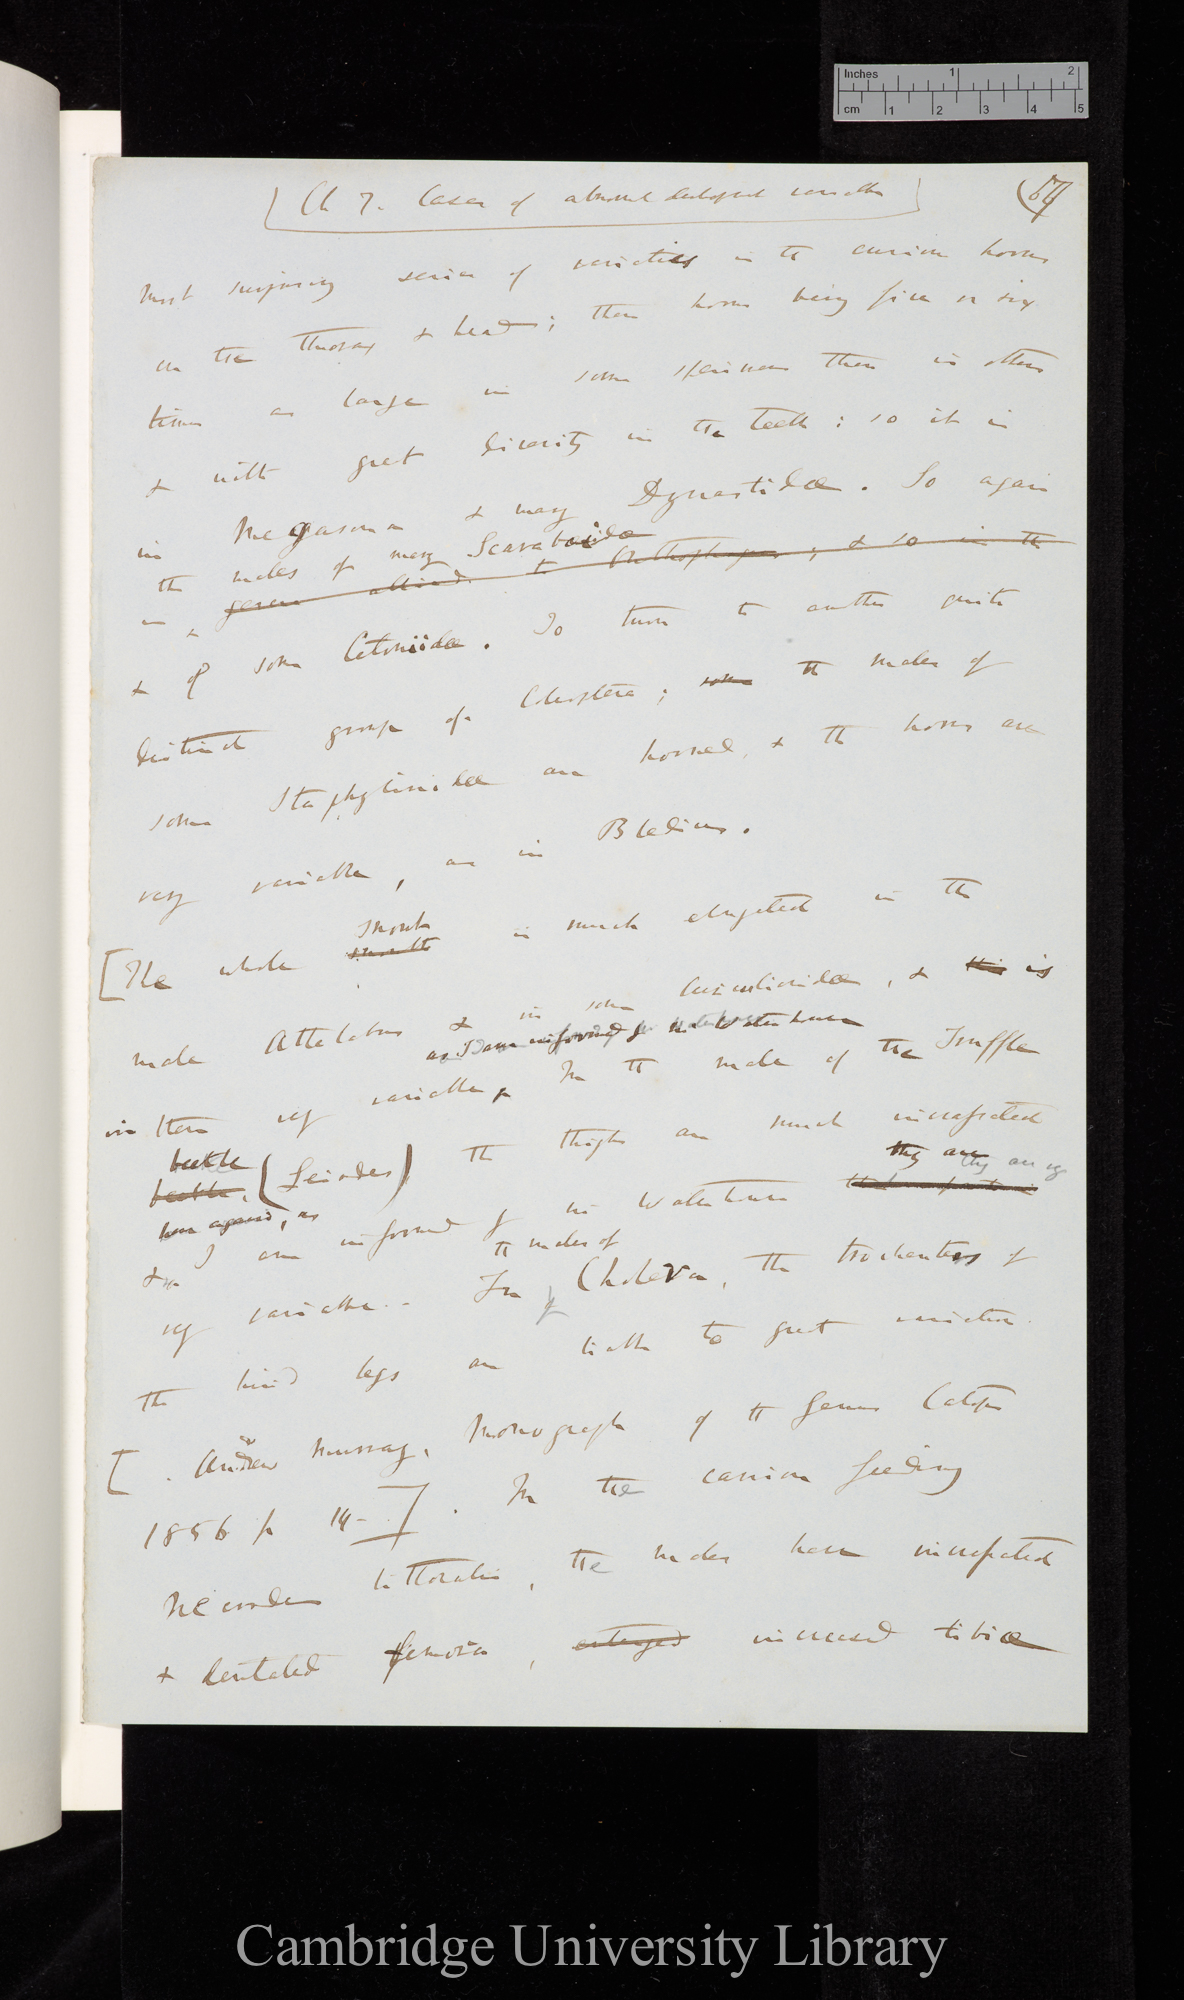 Inches 1 2
cm 1 2 3 4 5
Ch 7. Cases of abnormal developed variable
64
most surprising series of varieties in the curious horns
on the thorax & head; these horns being five or six
times as large in some specimens than in others
& with great diversity in the teeth; so it is
in Megasoma & many Dynastidæ. So again
in the males of many Scarabæidæ
genera allied to Onthophagus; & so in the
& of some Cetoniidæ. To turn to another quite
distinct group of Coleoptera; some the males of
some Staphylinidæ are horned, & the horns are
very variable, as in Bledius.
[The whole mouth snout is much elongated in the
male Attelabus & in some Curculionidæ, & this is
as I am informed by Mr Waterhouse
in them very variable. In the male of the Truffle
beetle (Leiodes) the thighs are much incrassated
beetle. they are they are vy
here again, as
& as I am informed by Mr Waterhouse
very variable. In the males of Choleva, the trochanters of
the hind legs are liable to great variation.
[Andrew Murray, Monograph of the Genus Catops
1856 p 14-]. In the carrion feeding
Necrodes littoralis, the males have incrassated
& dentated femora, enlarged increased tibiæ
Cambridge University Library